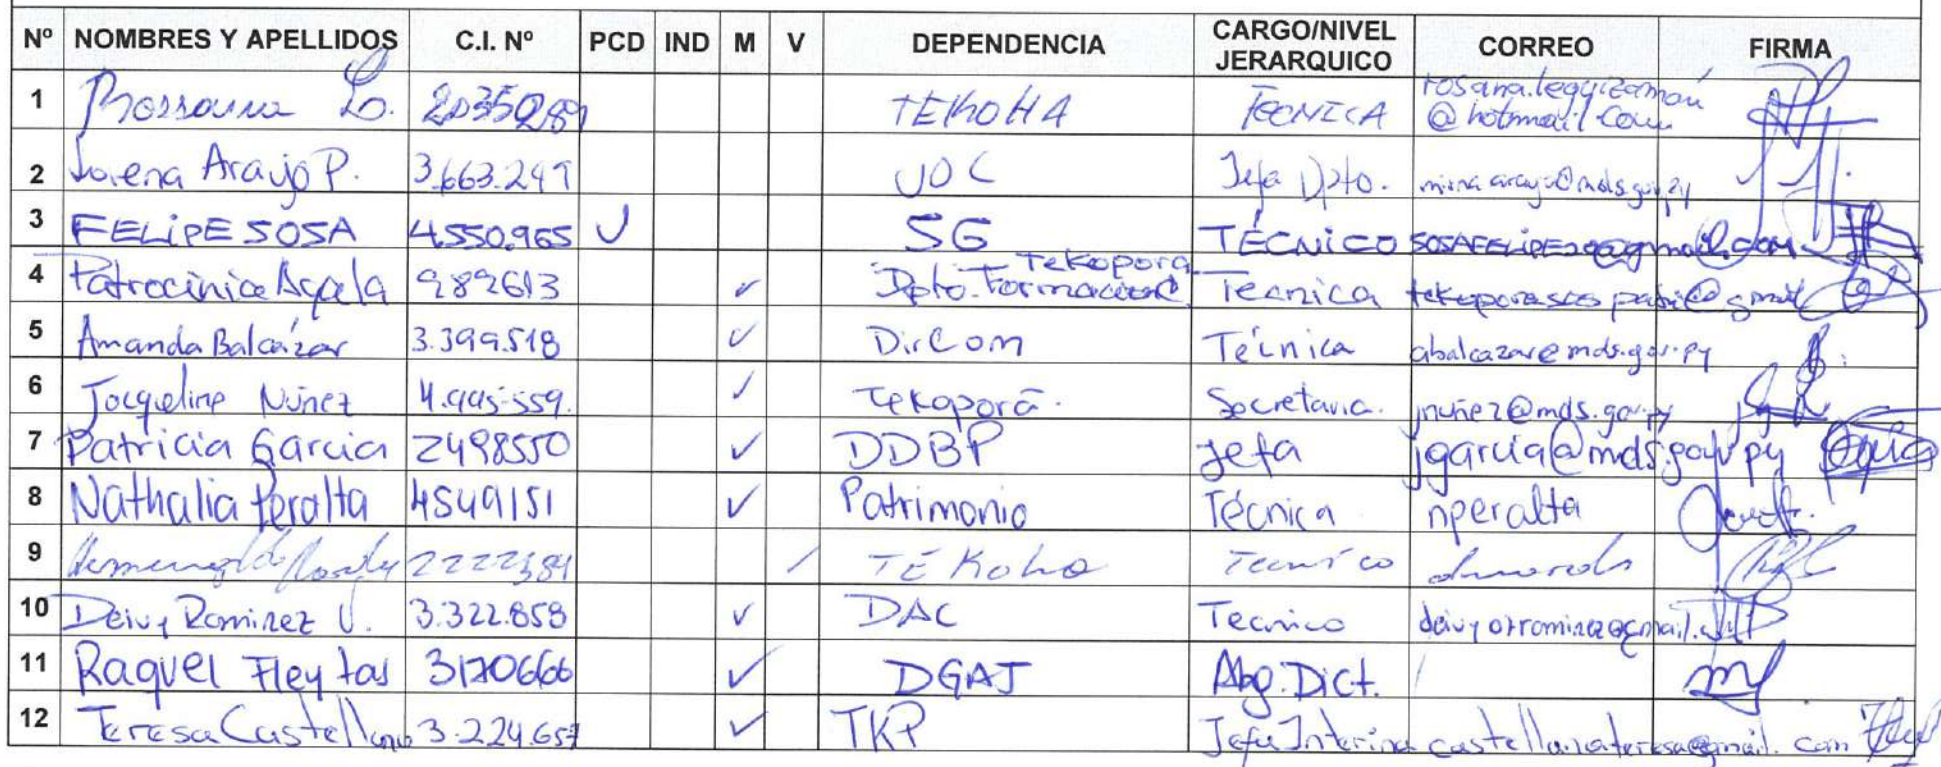 Nº NOMBRES Y APELLIDOS C.I. Nº PCD IND M V DEPENDENCIA CARGO/NIVEL JERARQUICO CORREO FIRMA
1 Rossana L. TEKOHA TECNICA rosana.leguizamón @hotmail.com
2 Lorena Araujo P. 3.663.249 UOC Jefa Dpto.
3 FELIPE SOSA 4.550.965 SG TÉCNICO
4 Patrocinia Ayala 982613 Dpto. Formación Tekopora Tecnica
5 Amanda Balcázar 3.399.518 ✓ DirCom Técnica abalcazar@mds.gov.py
6 Jacqueline Núñez 4.995.559. ✓ Tekoporã. Secretaria. jnuñez@mds.gov.py
7 Patricia Garcia 2498550 ✓ DDBP Jefa jgarcia@mds.gov.py
8 Nathalia Peralta 4549151 ✓ Patrimonio Técnica nperalta
9 2222384 TEKoha Tecnico
10 Deivy Ramirez V. 3.322.858 ✓ DAC Tecnico
11 Raquel Fleytas 3170666 ✓ DGAJ Abg. Dict.
12 Teresa Castellano 3.224.657 ✓ TKP Jefa Interina